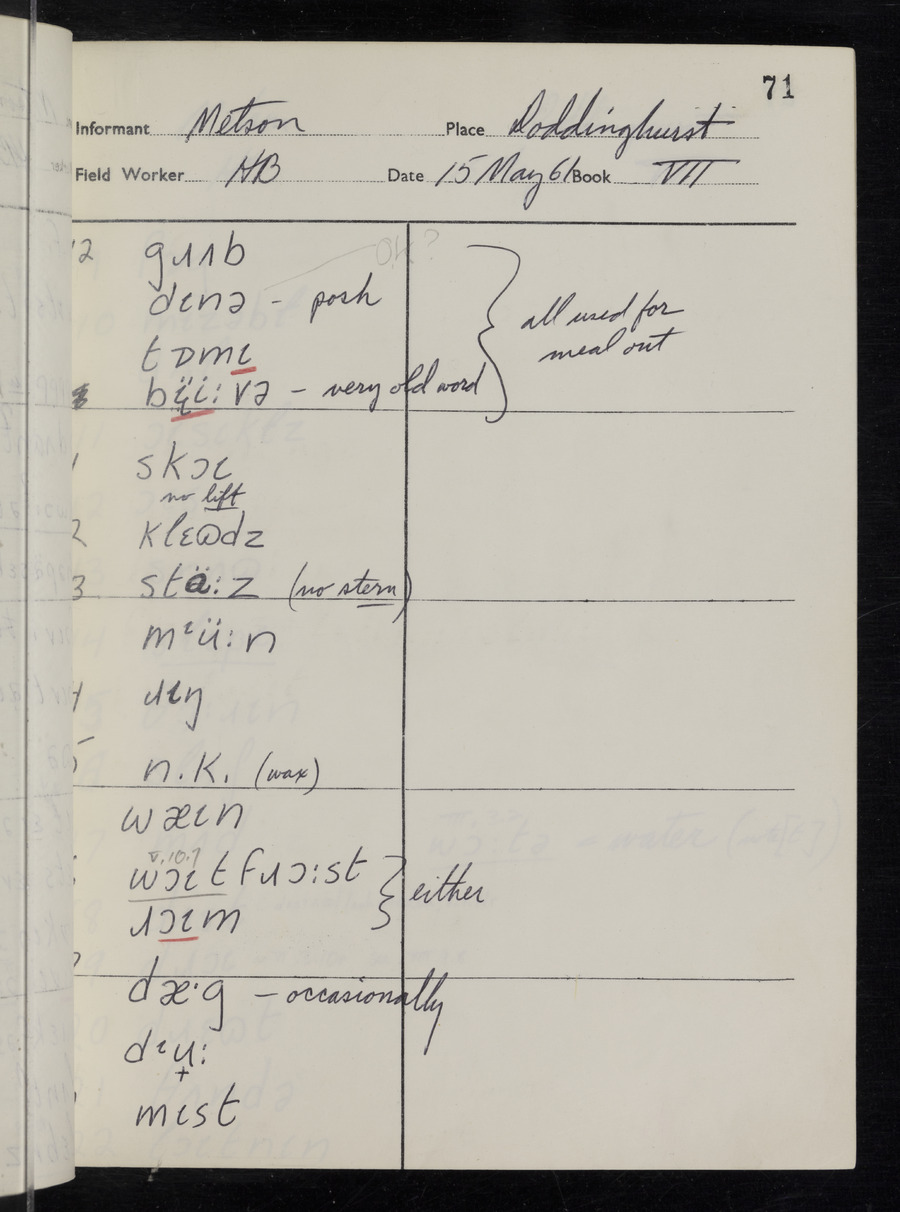 71
Informant Metson Place Doddinghurst
Field Worker HB Date 15 May 61 Book VII
12 gɹʌb OK?
dɪnə - posh
tɒmɪ
bï̞i:və - very old word
all used for
meal out
1 skɔɪ
no lift
2 klɛɷdz
3 stä:z (no stern)
mᶦü:n
4 ɹɪŋ
5 n.k. (wax)
wæɪn
v.10.7
wɔɪt fɹɔ:st
ɹɔɪm
either
dæ·g - occasionally
dᶦu̟:
mɪst